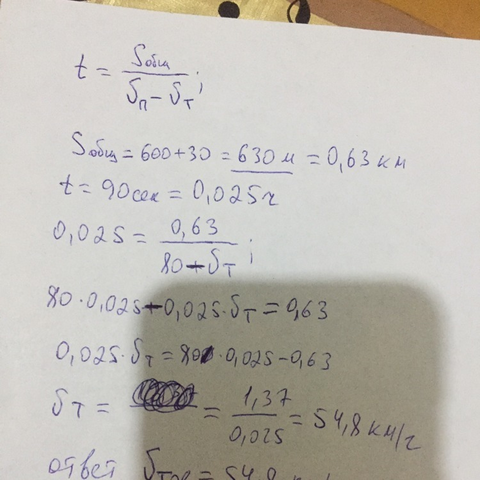 t = Sобщ / (υп − υт);
Sобщ = 600 + 30 = 630 м = 0,63 км
t = 90 сек = 0,025 ч
0,025 = 0,63 / (80 − υт);
80 · 0,025 − 0,025 · υт = 0,63
0,025 · υт = 80 · 0,025 − 0,63
υт = = 1,37 / 0,025 = 54,8 км/ч
ответ = 54,8